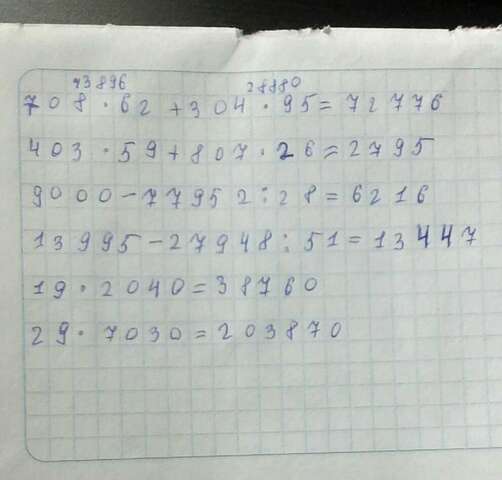 43896 28880
708·62+304·95=72776
403·59+807·26=2795
9000-77952:28=6216
13995-27948:51=13447
19·2040=38760
29·7030=203870